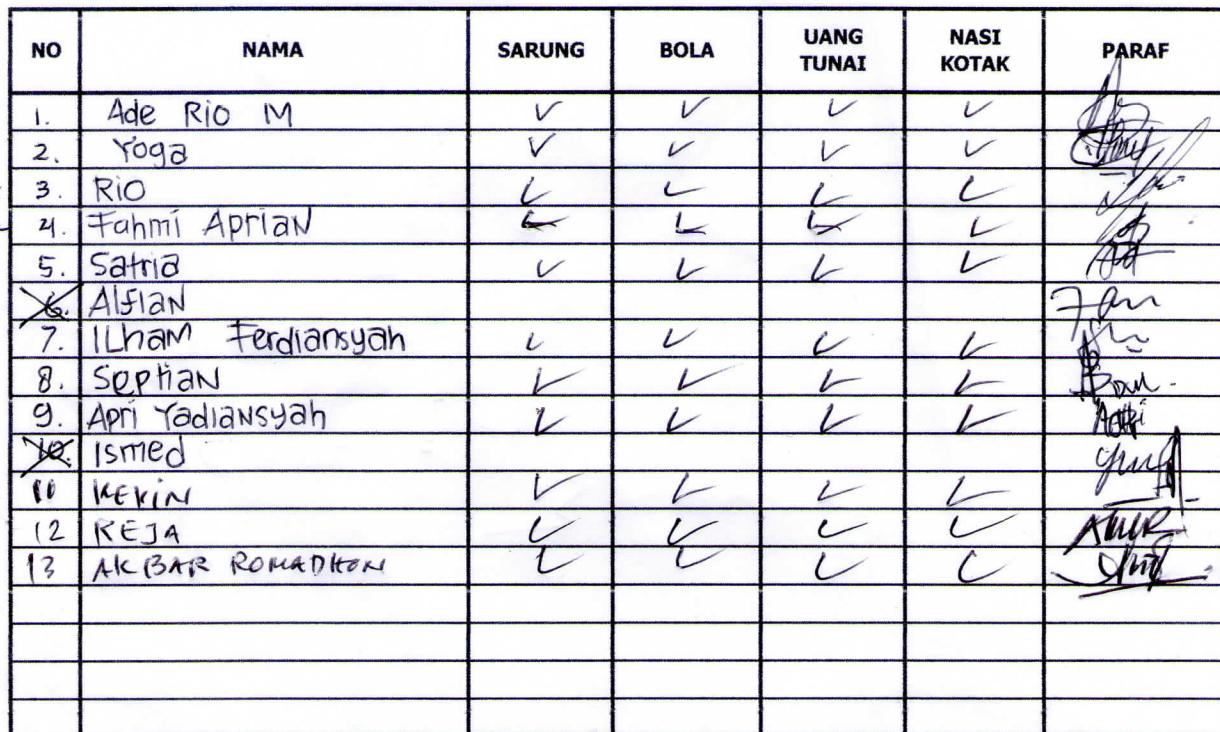 NO NAMA SARUNG BOLA UANG TUNAI NASI KOTAK PARAF
1. Ade Rio M ✓ ✓ ✓ ✓
2. Yoga ✓ ✓ ✓ ✓
3. Rio ✓ ✓ ✓ ✓
4. Fahmi Aprian ✓ ✓ ✓ ✓
5. Satria ✓ ✓ ✓ ✓
6. Alfian
7. Ilham Ferdiansyah ✓ ✓ ✓ ✓
8. Septian ✓ ✓ ✓ ✓
9. Apri Yadiansyah ✓ ✓ ✓ ✓
10. Ismed
11 KEKIN ✓ ✓ ✓ ✓
12 REJA ✓ ✓ ✓ ✓
13 AKBAR ROMADHON ✓ ✓ ✓ ✓